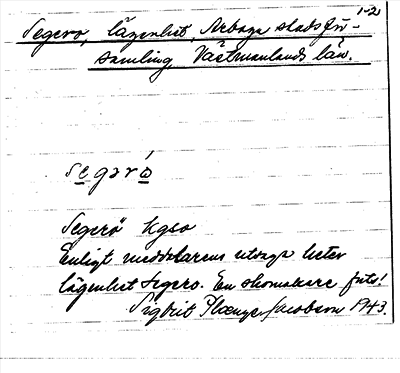 1-2
Segerö, lägenhet, Arboga stadsför-
samling, Västmanlands län.
segərö́
Segerö Kgeo
Enligt meddelarens utsago heter
lägenhet Segero. En skomakare
Sigbrit Jacobson 1943.